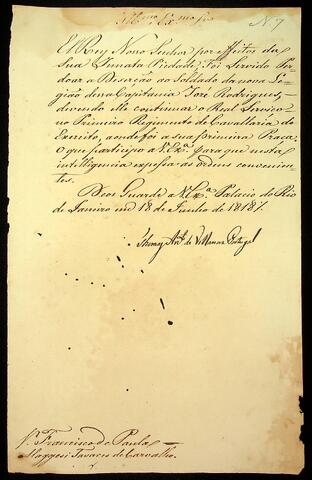 Ill.mo e Ex.mo Snr.
N 7
El Rey Nosso Senhor por effeitos da
Sua Innata Piedade: Foi Servido Per-
doar a Deserção ao Soldado da nova Le-
gião dessa Capitania José Rodrigues,
devendo elle continuar o Real Serviço
no Primeiro Regimento de Cavallaria do
Exercito, aonde foi a sua primeira Praça:
O que participo a V.Ex.ª para que nesta
intelligencia expessa as ordens convenien-
tes.
Deos Guarde a V.Ex.ª Palacio do Rio
de Janeiro em 18 de Junho de 1818.
Thomaz Ant.º de Villanova Portugal
Francisco de Paula
Maggesi Tavares de Carvalho.